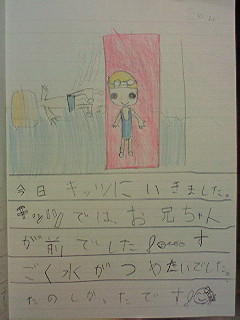 今日 キッツに いきました。
では、お兄ちゃん
が前でした す
ごく水がつめたいでした。
たのしかったです